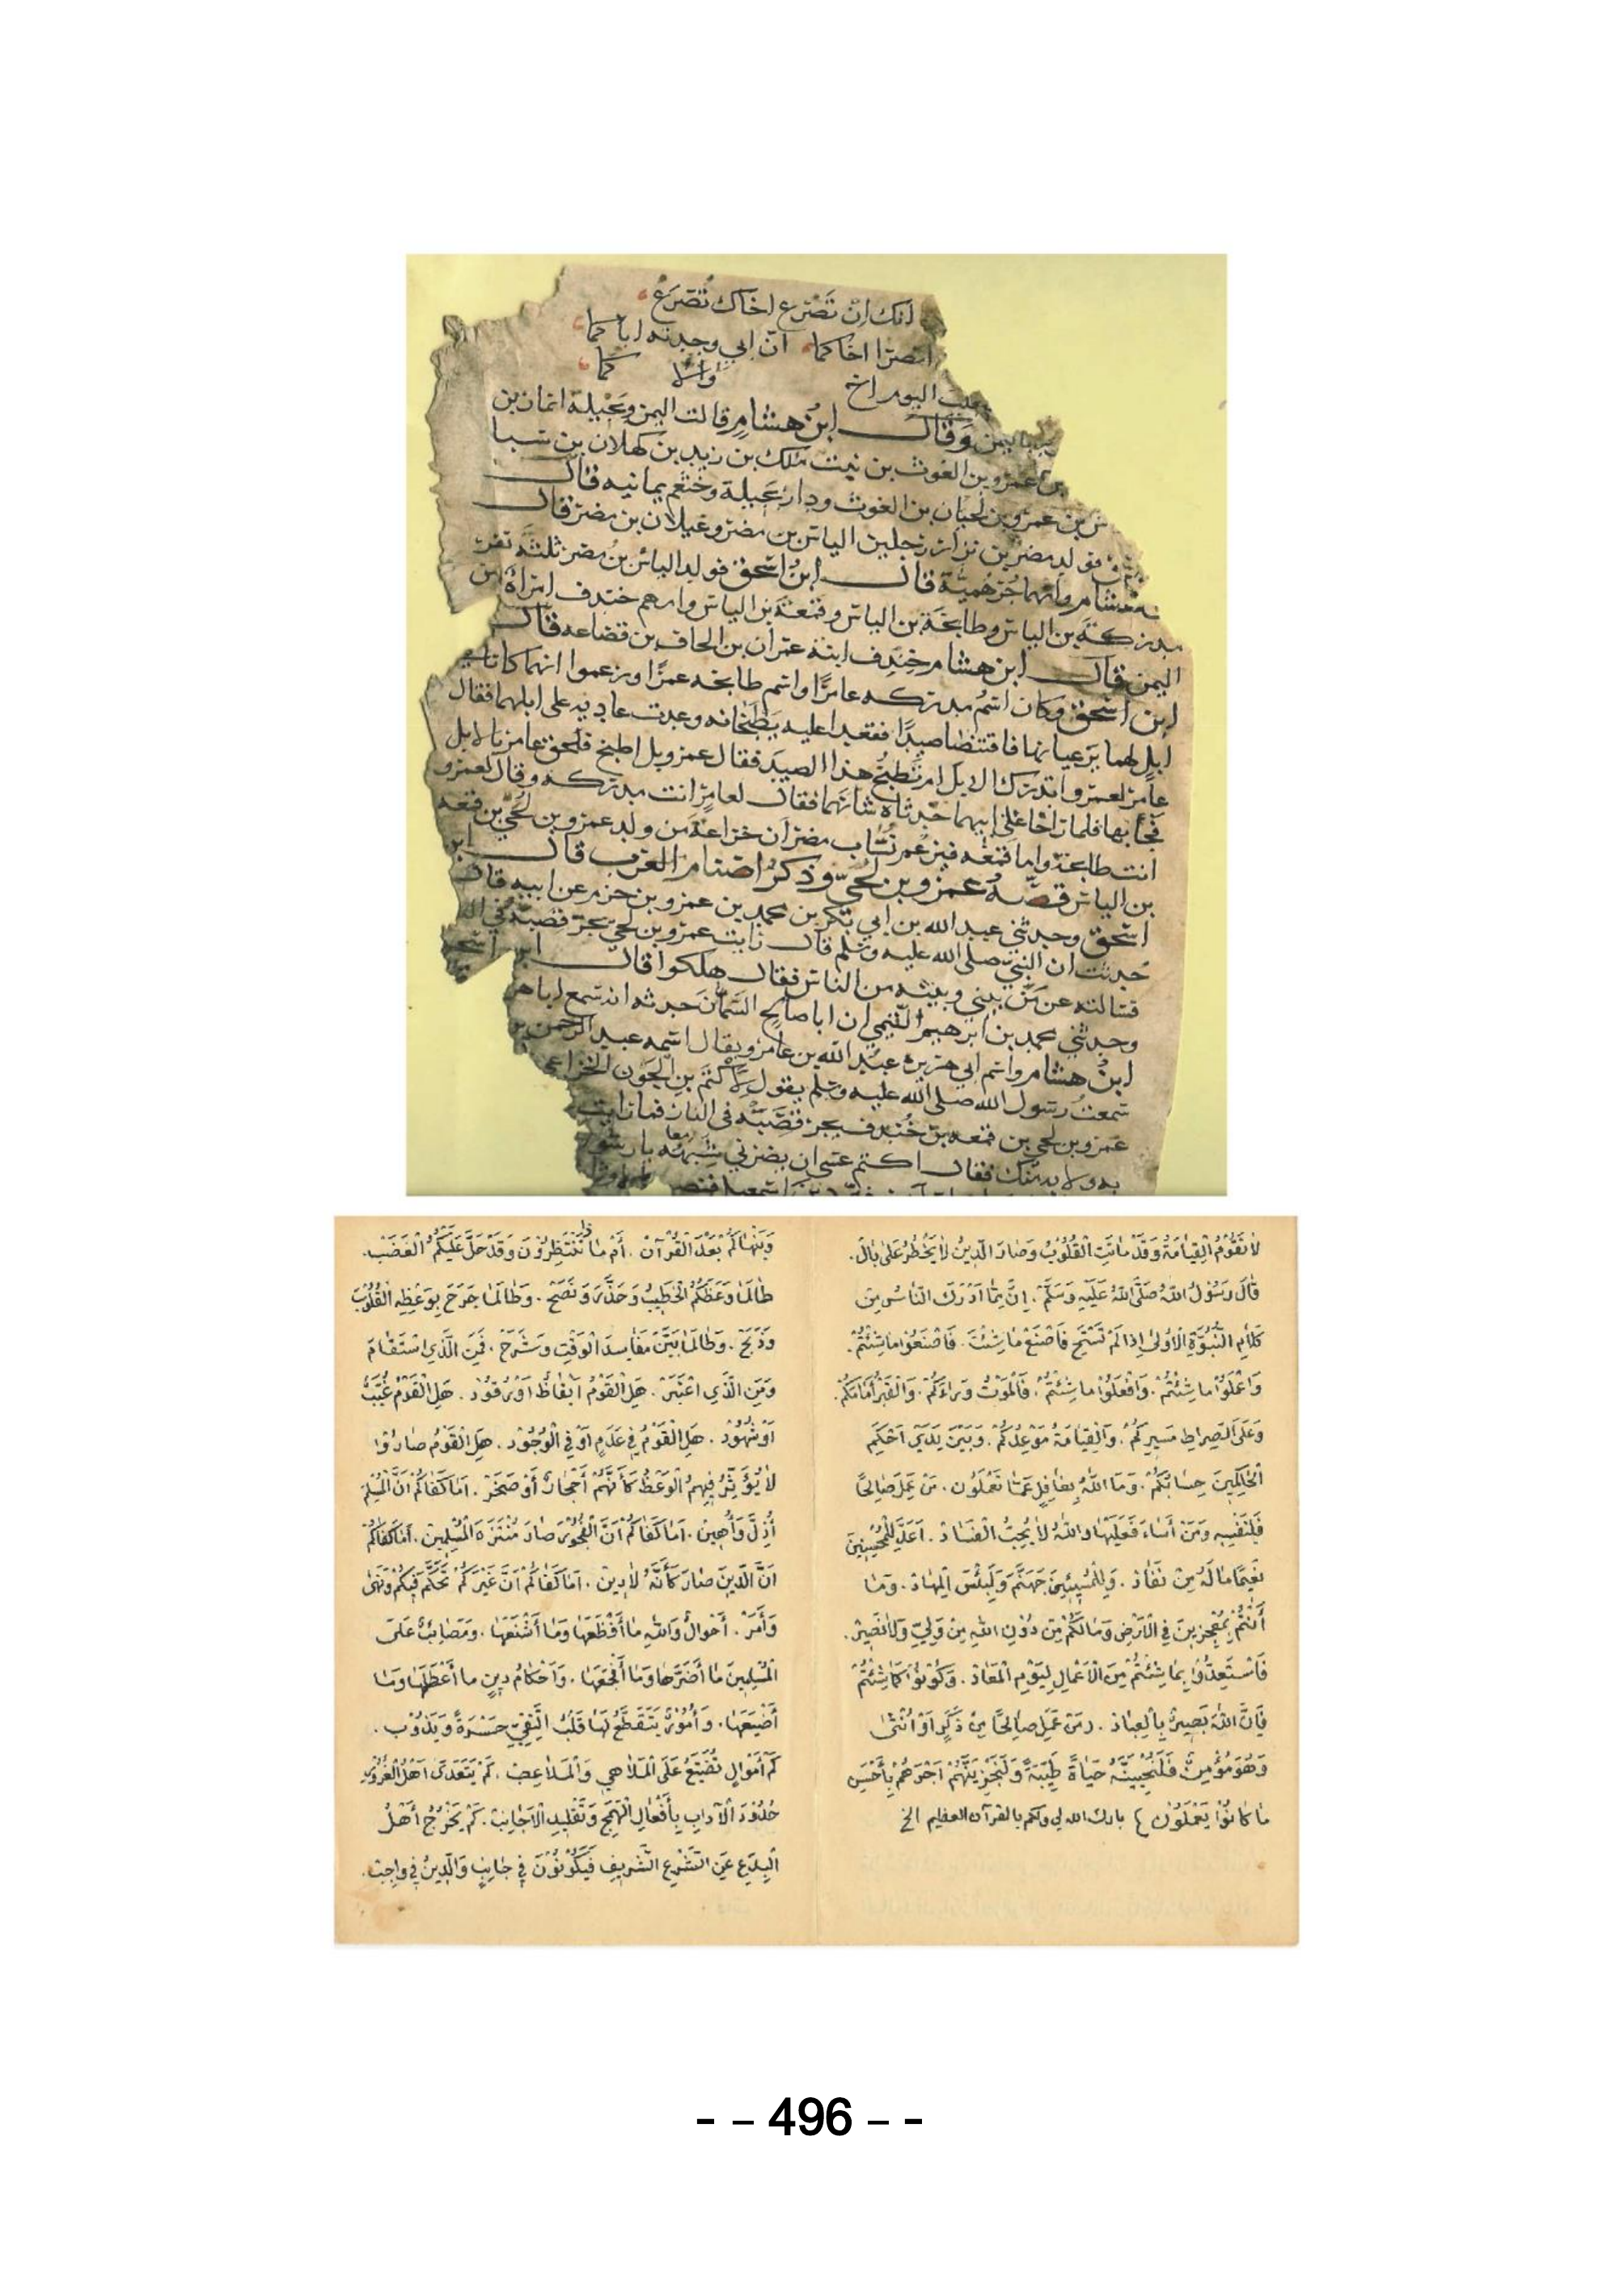 انك ان تصرع اخاك تصرع
انصرا اخاكما ان ابي وجدته اباكما
اليوم اخ والا كما
وقال ابن هشام قالت اليمن وبجيلة انمار بن
بن عمرو بن الغوث بن نبت ملك بن زيد بن كهلان بن سبا
بن عمرو بن لحيان بن الغوث ودار بجيلة وخثعم يمانيه قال
فولد مضر بن نزار رجلين الياس بن مضر وغيلان بن مضر قال
هشام وامهما جرهمية قال ابن اسحق فولد الياس بن مضر ثلثة نفر
مدركة بن الياس وطابخة بن الياس وقمعة بن الياس وامهم خندف امراة من
اليمن قال ابن هشام خندف ابنة عمران بن الحاف بن قضاعه قال
ابن اسحق وكان اسم مدركه عامرا واسم طابخه عمرا وزعموا انهما كانا في
ابل لهما يرعيانها فاقتنصا صيدا فقعدا عليه يطبخانه وعدت عاديه على ابلهما فقال
عامر لعمرو اتدرك الابل ام تطبخ هذا الصيد فقال عمرو بل اطبخ فلحق عامر بالابل
فجأ بها فلما راحا على ابيهما حدثاه شانهما فقال لعامر انت مدركه وقال لعمرو
انت طابخة واما قمعه فيزعم نساب مضر ان خزاعة من ولد عمرو بن لحي بن قمعه
بن الياس قصة عمرو بن لحي وذكر اصنام العرب قال ابن
اسحق وحدثني عبد الله بن ابي بكر بن محمد بن عمرو بن حزم عن ابيه قال
حدثت ان النبي صلى الله عليه وسلم قال رايت عمرو بن لحي يجر قصبه في النار
فسالته عن من بيني وبينه من الناس فقال هلكوا قال ابن اسحق
وحدثني محمد بن ابرهيم التيمي ان ابا صالح السمان حدثه انه سمع ابا هر
ابن هشام واسم ابي هريرة عبد الله بن عامر ويقال اسمه عبد الرحمن
سمعت رسول الله صلى الله عليه وسلم يقول لاكثم بن الجون الخزاعي
عمرو بن لحي بن قمعه بن خندف يجر قصبه في النار فما رايت
به ولا بد منك فقال اكثم عسى ان يضرني شبهه يا رسول
لَا تَقُوْمُ الْقِيَامَةُ وَقَدْ مَاتَتِ الْقُلُوْبُ وَصَارَ الدِّيْنُ لَا يَخْطُرُ عَلَى بَالْ.
قَالَ رَسُوْلُ اللهِ صَلَّى اللهُ عَلَيْهِ وَسَلَّمْ. إِنَّ مِمَّا أَدْرَكَ النَّاسُ مِنْ
كَلَامِ النُّبُوَّةِ الْأُوْلَى إِذَا لَمْ تَسْتَحِ فَاصْنَعْ مَا شِئْتَ. فَاصْنَعُوْا مَا شِئْتُمْ.
وَاعْمَلُوْا مَا شِئْتُمْ. وَافْعَلُوْا مَا شِئْتُمْ. فَالْمَوْتُ وَرَاءَكُمْ. وَالْقَبْرُ أَمَامَكُمْ.
وَعَلَى الصِّرَاطِ مَسِيْرِكُمْ. وَالْقِيَامَةُ مَوْعِدُكُمْ. وَبَيْنَ يَدَيْ أَحْكَمِ
الْحَاكِمِيْنَ حِسَابُكُمْ. وَمَا اللهُ بِغَافِلٍ عَمَّا تَعْمَلُوْنَ. مَنْ عَمِلَ صَالِحًا
فَلِنَفْسِهِ وَمَنْ أَسَاءَ فَعَلَيْهَا وَاللهُ لَا يُحِبُّ الْفَسَادْ. أَعَدَّ لِلْمُحْسِنِيْنَ
نَعِيْمًا مَالَهُ مِنْ نَفَادْ. وَلِلْمُسِيْئِيْنَ جَهَنَّمَ وَلَبِئْسَ الْمِهَادْ. وَمَا
أَنْتُمْ بِمُعْجِزِيْنَ فِي الْأَرْضِ وَمَا لَكُمْ مِنْ دُوْنِ اللهِ مِنْ وَلِيٍّ وَلَا نَصِيْرْ.
فَاسْتَعِدُّوْا بِمَا شِئْتُمْ مِنَ الْأَعْمَالِ لِيَوْمِ الْمَعَادْ. وَكُوْنُوْا كَمَا شِئْتُمْ
فَإِنَّ اللهَ بَصِيْرٌ بِالْعِبَادْ. (مَنْ عَمِلَ صَالِحًا مِنْ ذَكَرٍ أَوْ أُنْثَى
وَهُوَ مُؤْمِنٌ فَلَنُحْيِيَنَّهُ حَيَاةً طَيِّبَةً وَلَنَجْزِيَنَّهُمْ أَجْرَهُمْ بِأَحْسَنِ
مَا كَانُوْا يَعْمَلُوْنَ) بارك الله لي ولكم بالقرآن العظيم الخ
وَيَنْهَاكُمْ بَعْدَ الْقُرْآنْ. أَمْ مَاذَا تَنْتَظِرُوْنَ وَقَدْ حَلَّ عَلَيْكُمُ الْغَضَبْ.
طَالَمَا وَعَظَكُمُ الْخَطِيْبُ وَحَذَّرَ وَنَصَحْ. وَطَالَمَا جَرَحَ بِوَعْظِهِ الْقُلُوْبَ
وَذَبَحْ. وَطَالَمَا بَيَّنَ مَفَاسِدَ الْوَقْتِ وَشَرَحْ. فَمَنِ الَّذِي اسْتَقَامَ
وَمَنِ الَّذِي اعْتَبَرْ. هَلِ الْقَوْمُ أَيْقَاظٌ أَوْ رُقُوْدْ. هَلِ الْقَوْمُ غُيَّبٌ
أَوْ شُهُوْدْ. هَلِ الْقَوْمُ فِي عَدَمٍ أَوْ فِي الْوُجُوْدْ. هَلِ الْقَوْمُ صَارُوْا
لَا يُؤَثِّرُ فِيْهِمُ الْوَعْظُ كَأَنَّهُمْ أَحْجَارٌ أَوْ صَخَرْ. أَمَا كَفَاكُمْ أَنَّ الْمُسْلِمَ
أُذِلَّ وَأُهِيْنْ. أَمَا كَفَاكُمْ أَنَّ الْفُجُوْرَ صَارَ مُنْتَزَهَ الْمُسْلِمِيْنْ. أَمَا كَفَاكُمْ
أَنَّ الدِّيْنَ صَارَ كَأَنَّهُ لَا دِيْنْ. أَمَا كَفَاكُمْ أَنَّ غَيْرَكُمْ تَحَكَّمَ فِيْكُمْ وَنَهَى
وَأَمَرْ. أَحْوَالٌ وَاللهِ مَا أَفْظَعَهَا وَمَا أَشْنَعَهَا. وَمَصَائِبُ عَلَى
الْمُسْلِمِيْنَ مَا أَضَرَّهَا وَمَا أَفْجَعَهَا. وَأَحْكَامُ دِيْنٍ مَا أَعْطَلَهَا وَمَا
أَضْيَعَهَا. وَأُمُوْرٌ يَتَقَطَّعُ لَهَا قَلْبُ التَّقِيِّ حَسْرَةً وَيَذُوْبْ.
كَمْ أَمْوَالٍ تُضَيَّعُ عَلَى الْمَلَاهِي وَالْمَلَاعِبْ. كَمْ يَتَعَدَّى أَهْلُ الْغُرُوْرِ
حُدُوْدَ الْآدَابِ بِأَفْعَالِ الْهَمَجِ وَتَقْلِيْدِ الْأَجَانِبْ. كَمْ يَخْرُجُ أَهْلُ
الْبِدَعِ عَنِ الشَّرْعِ الشَّرِيْفِ فَيَكُوْنُوْنَ فِي جَانِبٍ وَالدِّيْنُ فِي وَاجِبْ.
- – 496 – -